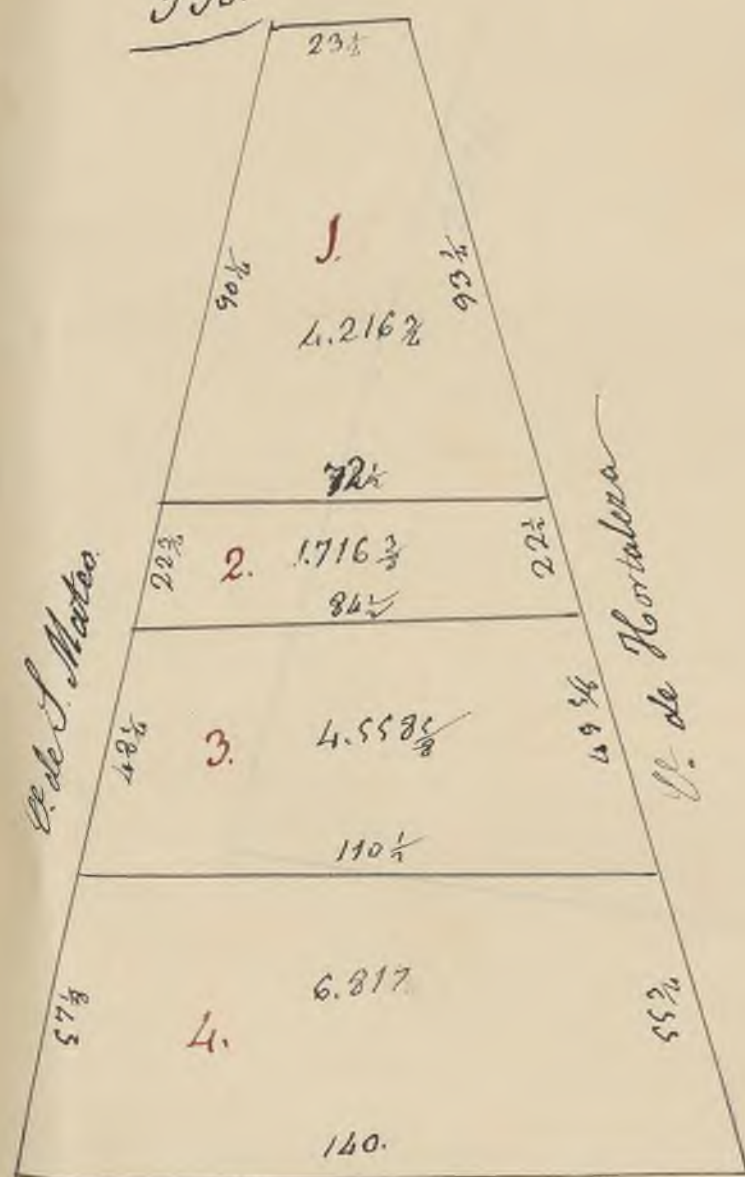 23 ½
1.
90 ½
93 ½
4.216 ¾
72 ½
22 ½
2.
1.716 ⅔
22 ½
84 ½
C.e de S. Mateo.
C.e de Hortaleza
48 ½
3.
4.558 ⅝
110 ½
4.
6.817
140.